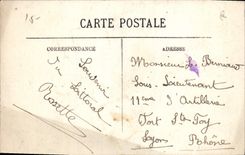 CARTE POSTALE
CORRESPONDANCE
ADRESSE
Souvenir
du Littoral
Rosette
Monsieur de
Sous-Lieutenant
11ème d'Artillerie
Fort Ste Foy
Lyon Rhône